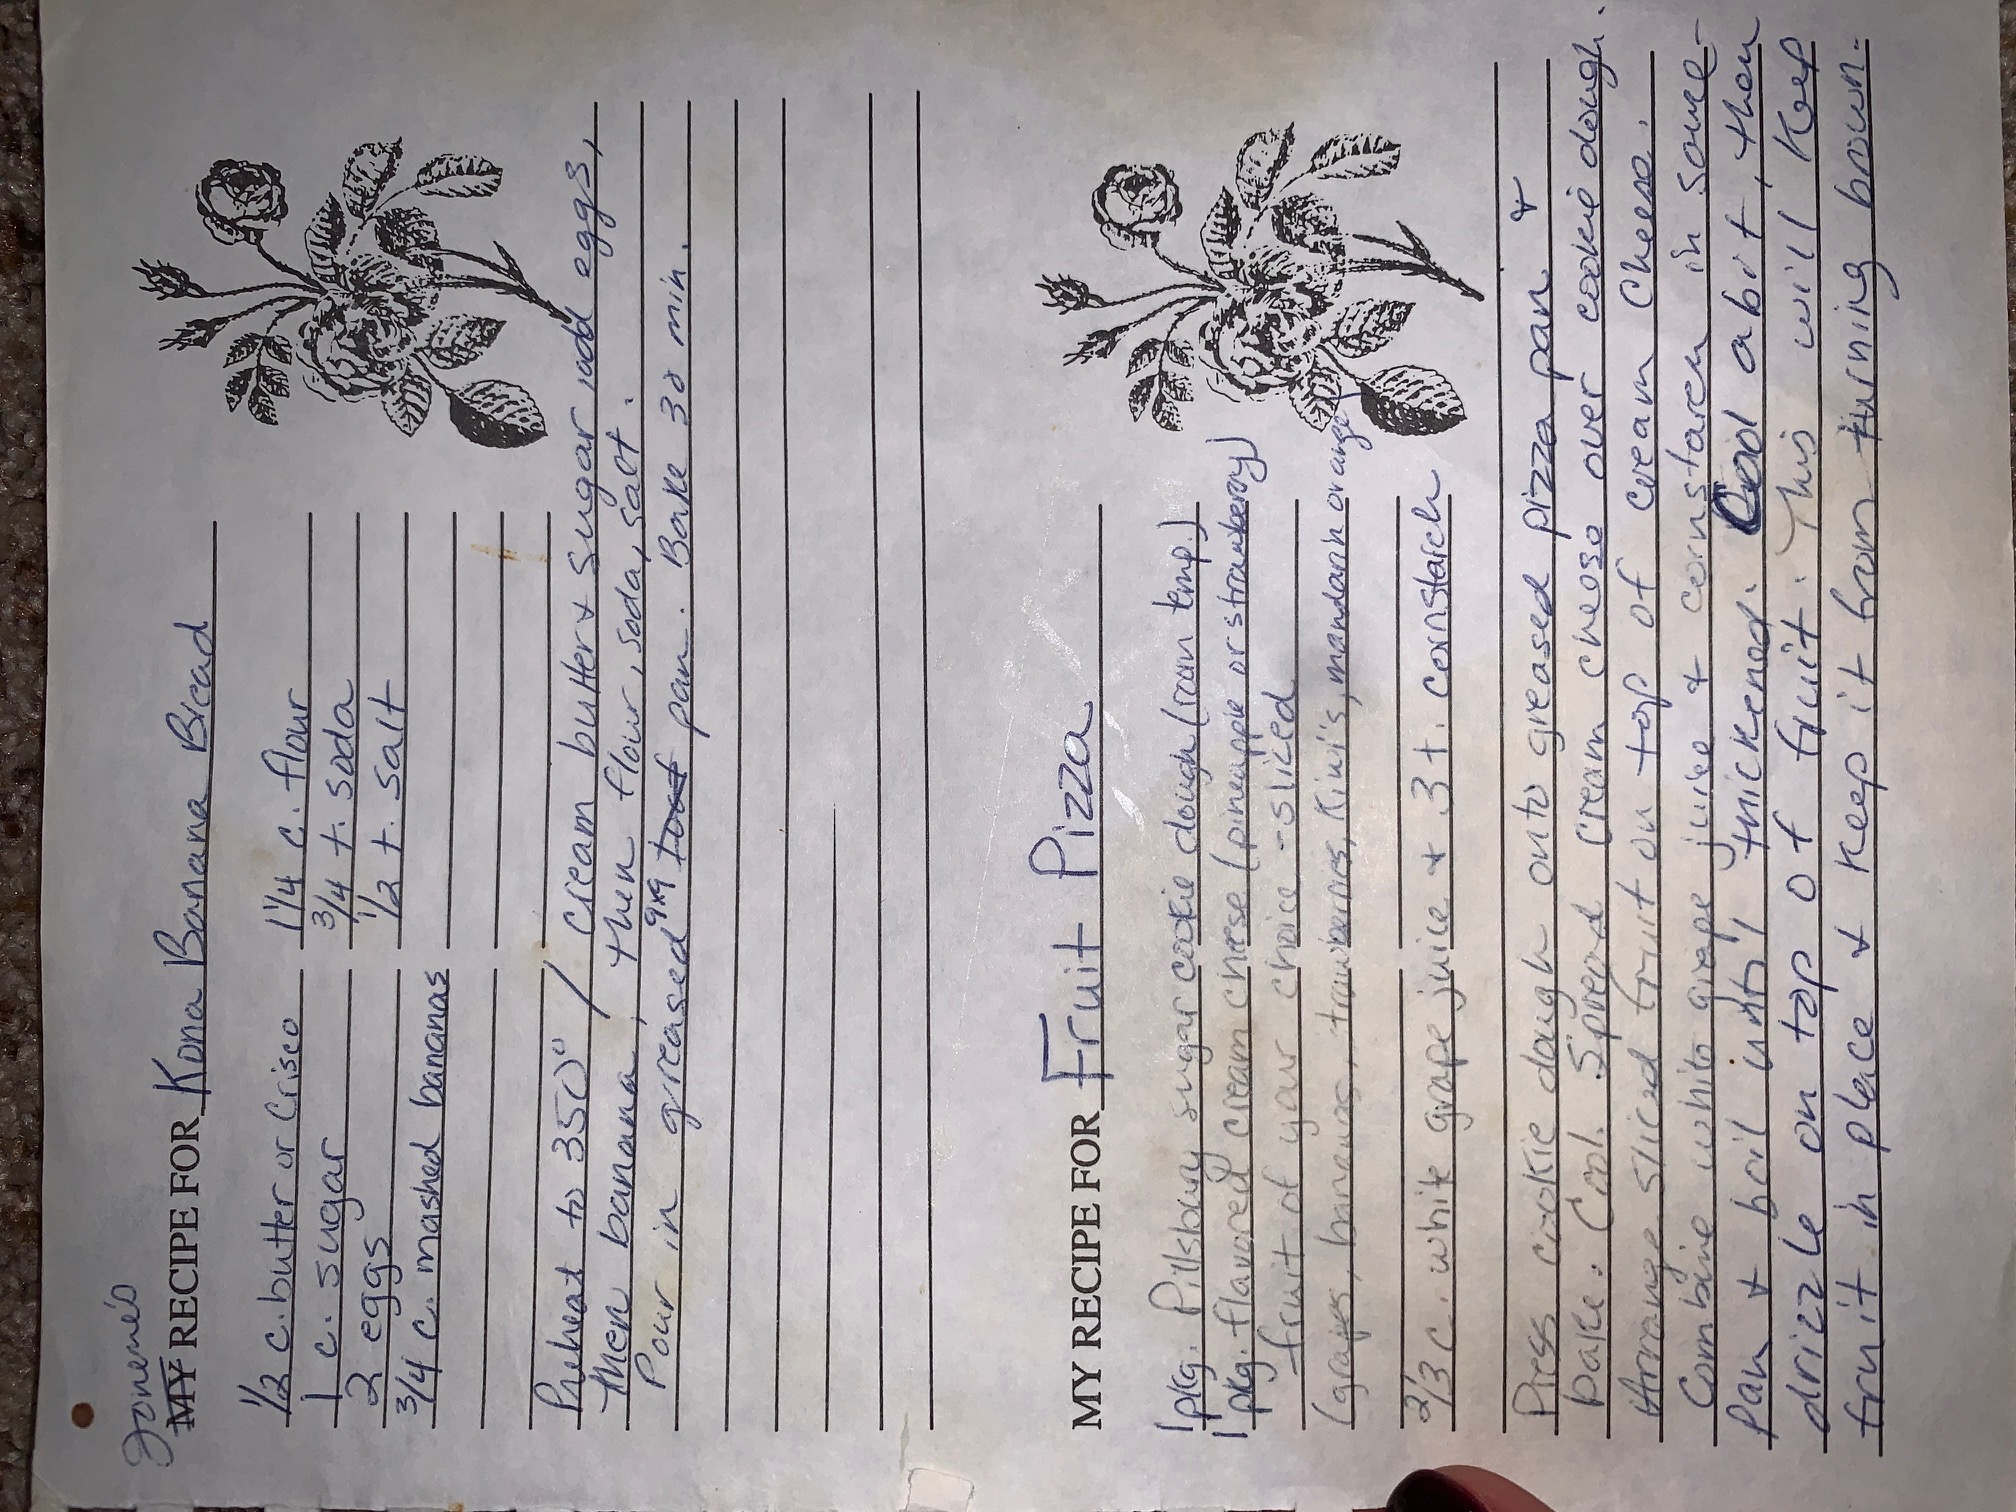 Jonene's
MY RECIPE FOR Kona Banana Bread
1/2 c. butter or Crisco
1 c. sugar
2 eggs
3/4 c. mashed bananas
1 1/4 c. flour
3/4 t. soda
1/2 t. salt
Preheat to 350° / cream butter & sugar, add eggs,
then banana, then flour, soda, salt.
Pour in greased 9x9 loaf pan. Bake 30 min.
MY RECIPE FOR Fruit Pizza
1 pkg. Pillsbury sugar cookie dough (room temp.)
1 pkg. flavored cream cheese (pineapple or strawberry)
fruit of your choice - sliced
(grapes, bananas, trawberries, Kiwi's, mandarin orange)
2/3 c. white grape juice & 3 t. cornstarch
Press cookie dough onto greased pizza pan &
bake. Cool. Spread cream cheese over cookie dough.
Arrange sliced fruit on top of cream cheese.
Combine white grape juice & cornstarch in sauce-
pan & boil until thickened. Cool a bit, then
drizzle on top of fruit. This will keep
fruit in place & keep it from turning brown.